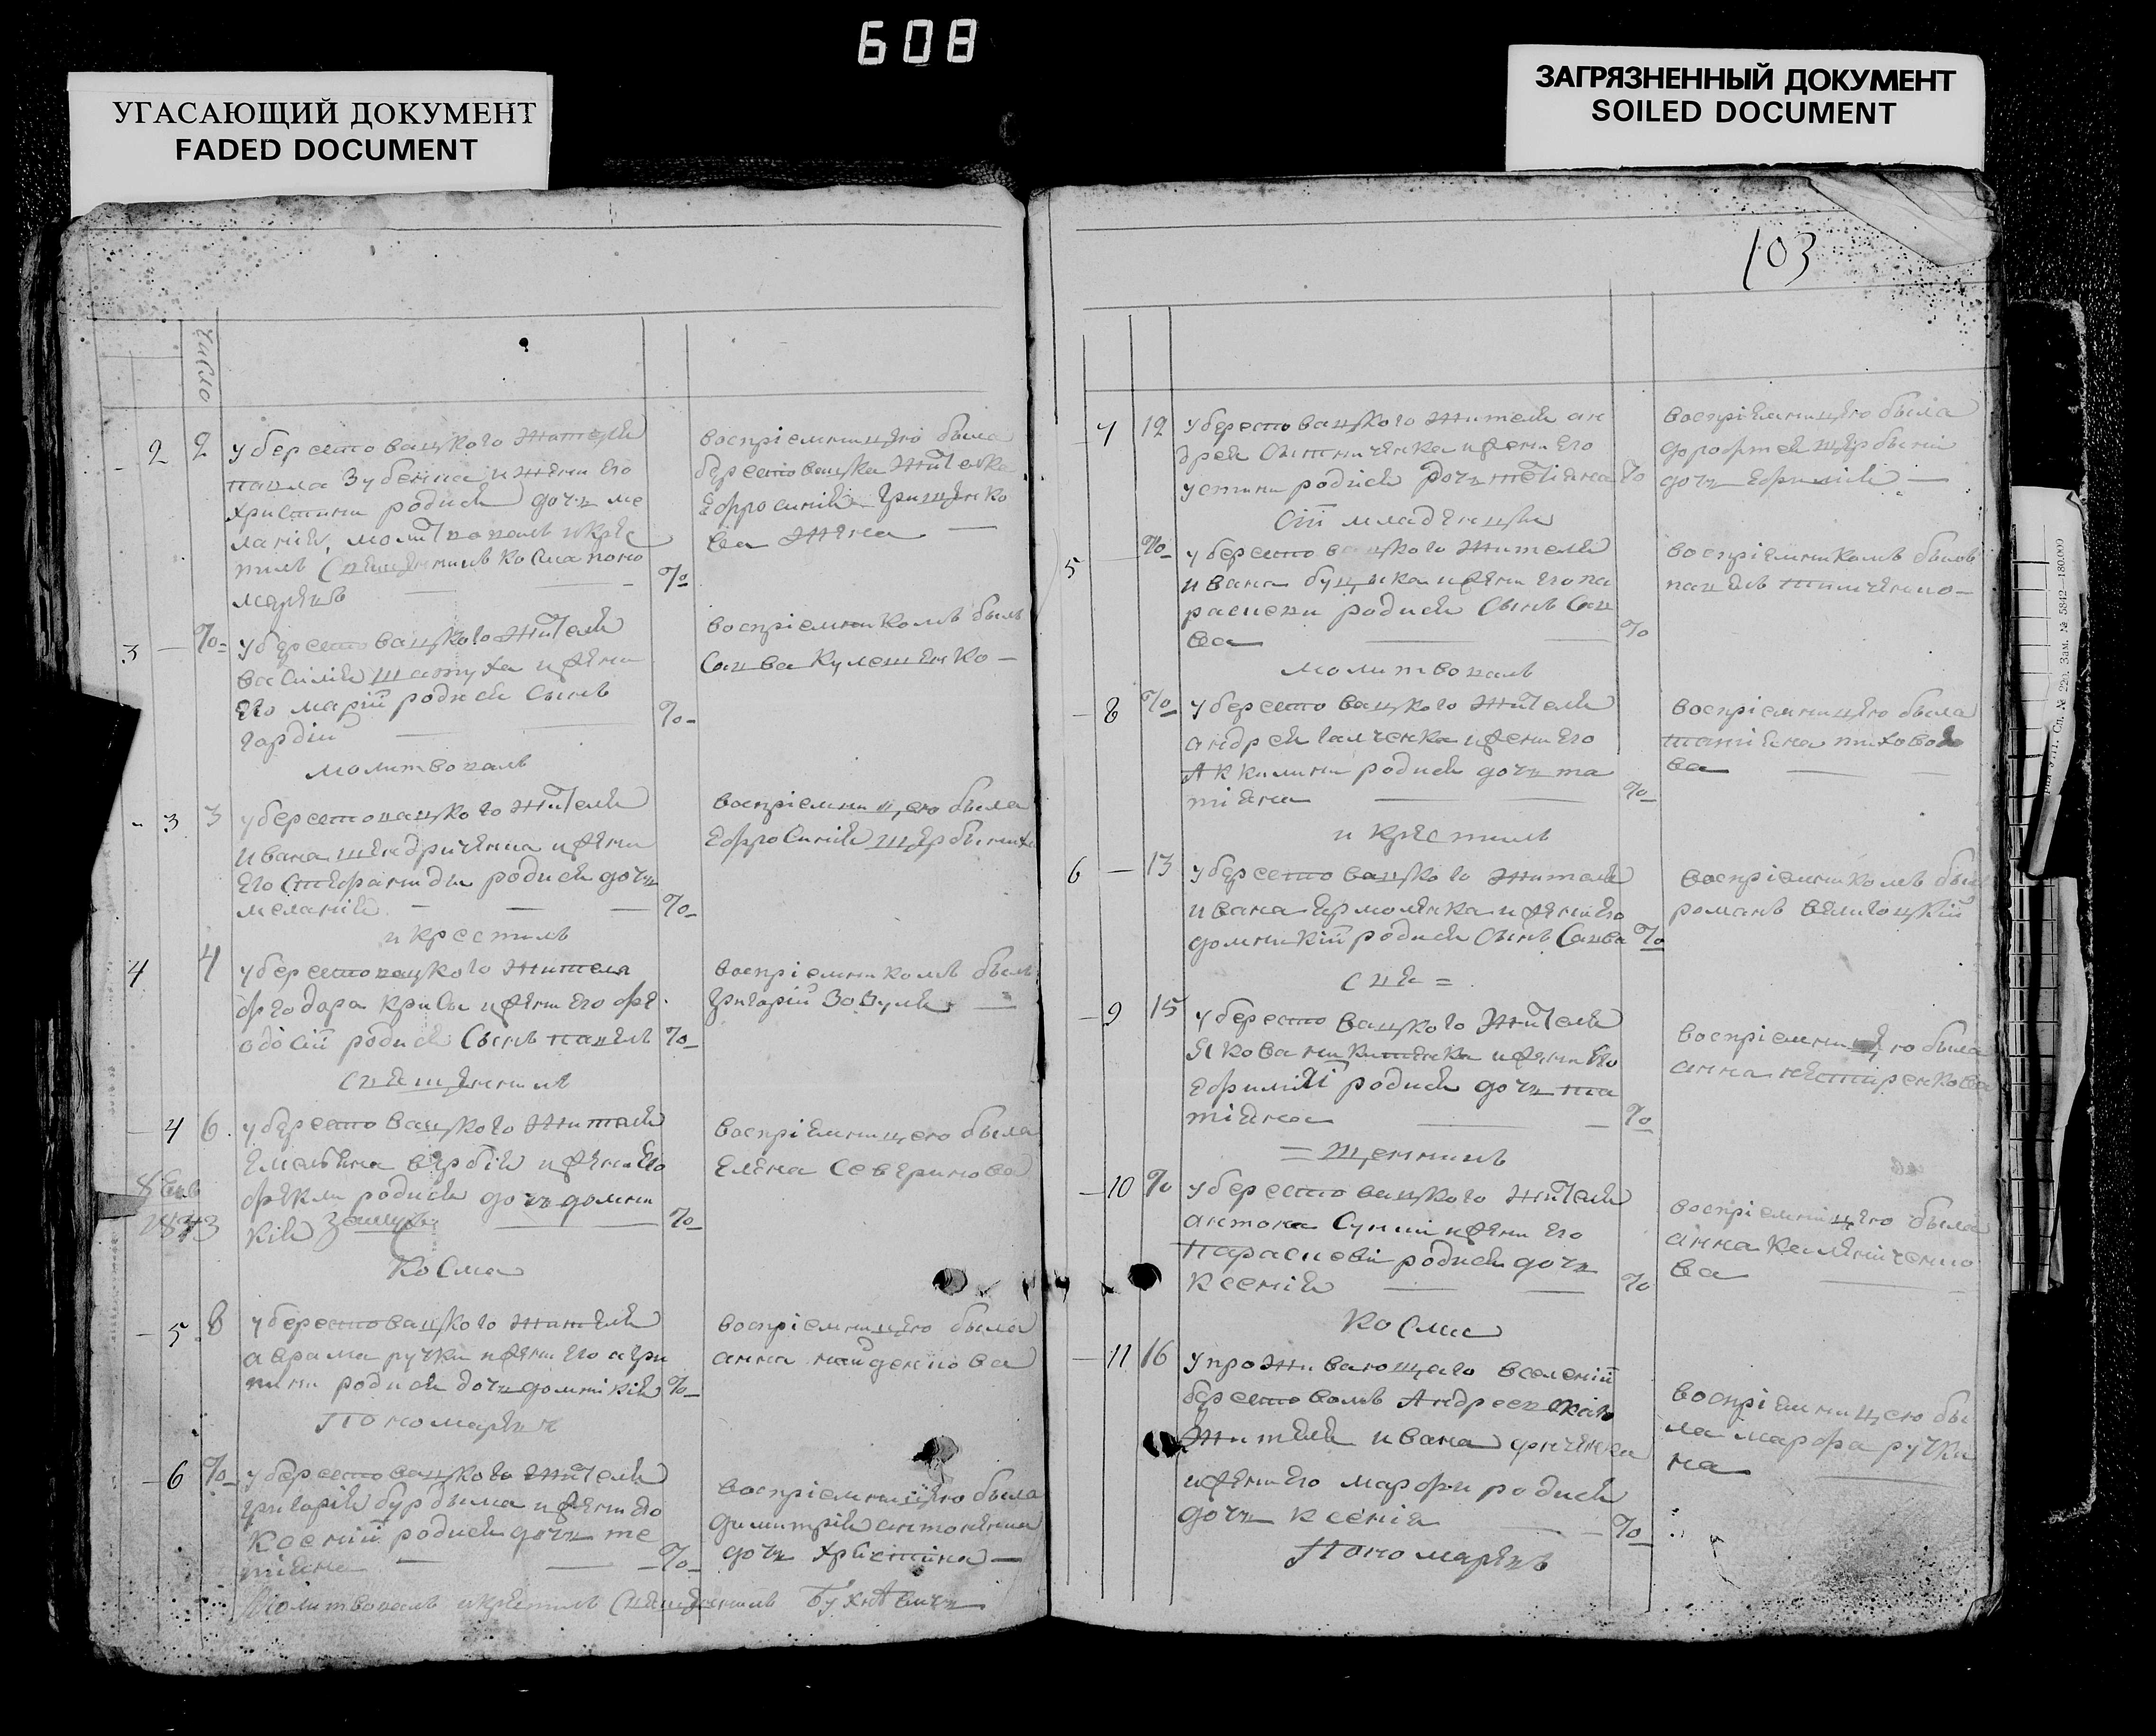 608
УГАСАЮЩИЙ ДОКУМЕНТ
FADED DOCUMENT
ЗАГРЯЗНЕННЫЙ ДОКУМЕНТ
SOILED DOCUMENT
103
число
2 2 у берестовацкого жителя
павла Зубенка и жены его
христины родися дочь ме
лания, молитвовалъ и крес
тилъ Священникъ косма поно
маревъ %
воспріемницею была
берестовацка жителка
Ефросинія Грищенко
ва жена
3 % у берестовацкого жителя
василия шаповала и жены
Его маріи родися Сынъ
гордій %
воспріемникомъ былъ
Савва Кулешенко
молитвовалъ
3 3 у берестовацкого жителя
ивана шендриченка и жены
Его Стефаниды родися дочь
меланія %
воспріемницею была
Ефросинія щербинина
и крестилъ
4 4 у берестовацкого жителя
феодора крисы и жены его фе
одосіи родися Сынъ павелъ %
воспріемникомъ былъ
Григорій Зозуля
священникъ
4 6 у берестовацкого жителя
Емельяна вербія и жены Его
феклы родися дочь домни
кія %
воспріемницею была
Елена Северинова
Косма
5 8 у берестовацкого жителя
аврама ручки и жены его агри
пины родися дочь домникія %
воспріемницею была
анна найденкова
Пономаревъ
6 % у берестовацкого жителя
григорія бурбыма и жены его
Ксеніи родися дочь те
тіяна %
воспріемницею была
димитрія антоненка
дочь христина
Молитвовалъ и крестилъ Священникъ
7 12 у берестовацкого жителя ан
дрея Ситниченка и жены Его
устины родися дочь тетіяна %
воспріемницею была
дорофтея щербыни
дочь Ефимія
Сій младенцы
5 % у берестовацкого жителя
ивана буценка и жены его па
раскевы родися Сынъ Сав
ва %
воспріемникомъ былъ
павелъ тимченко
молитвовалъ
8 % у берестовацкого жителя
андрея галченка и жены Его
Аккилины родися дочь та
тіяна %
воспріемницею была
татіяна пиховко
ва
и крестилъ
6 13 у берестовацкого жителя
ивана Ермоленка и жены Его
домникіи родися Сынъ Савва %
воспріемникомъ былъ
романъ величкій
свя =
9 15 у берестовацкого жителя
Якова никитенка и жены Его
Ефиміи родися дочь та
тіяна %
воспріемницею была
анна нестиренкова
= щенникъ
10 % у берестовацкого жителя
антона Супии и жены Его
Параскевіи родися дочь
ксенія %
воспріемницею была
анна каленіченко
ва
Косма
11 16 у проживающаго вселеніи
берестовомъ Андреевскаго
жителя ивана донченка
и жены Его марфы родися
дочь ксенія %
воспріемницею бы
ла марфа ручки
на
Пономаревъ